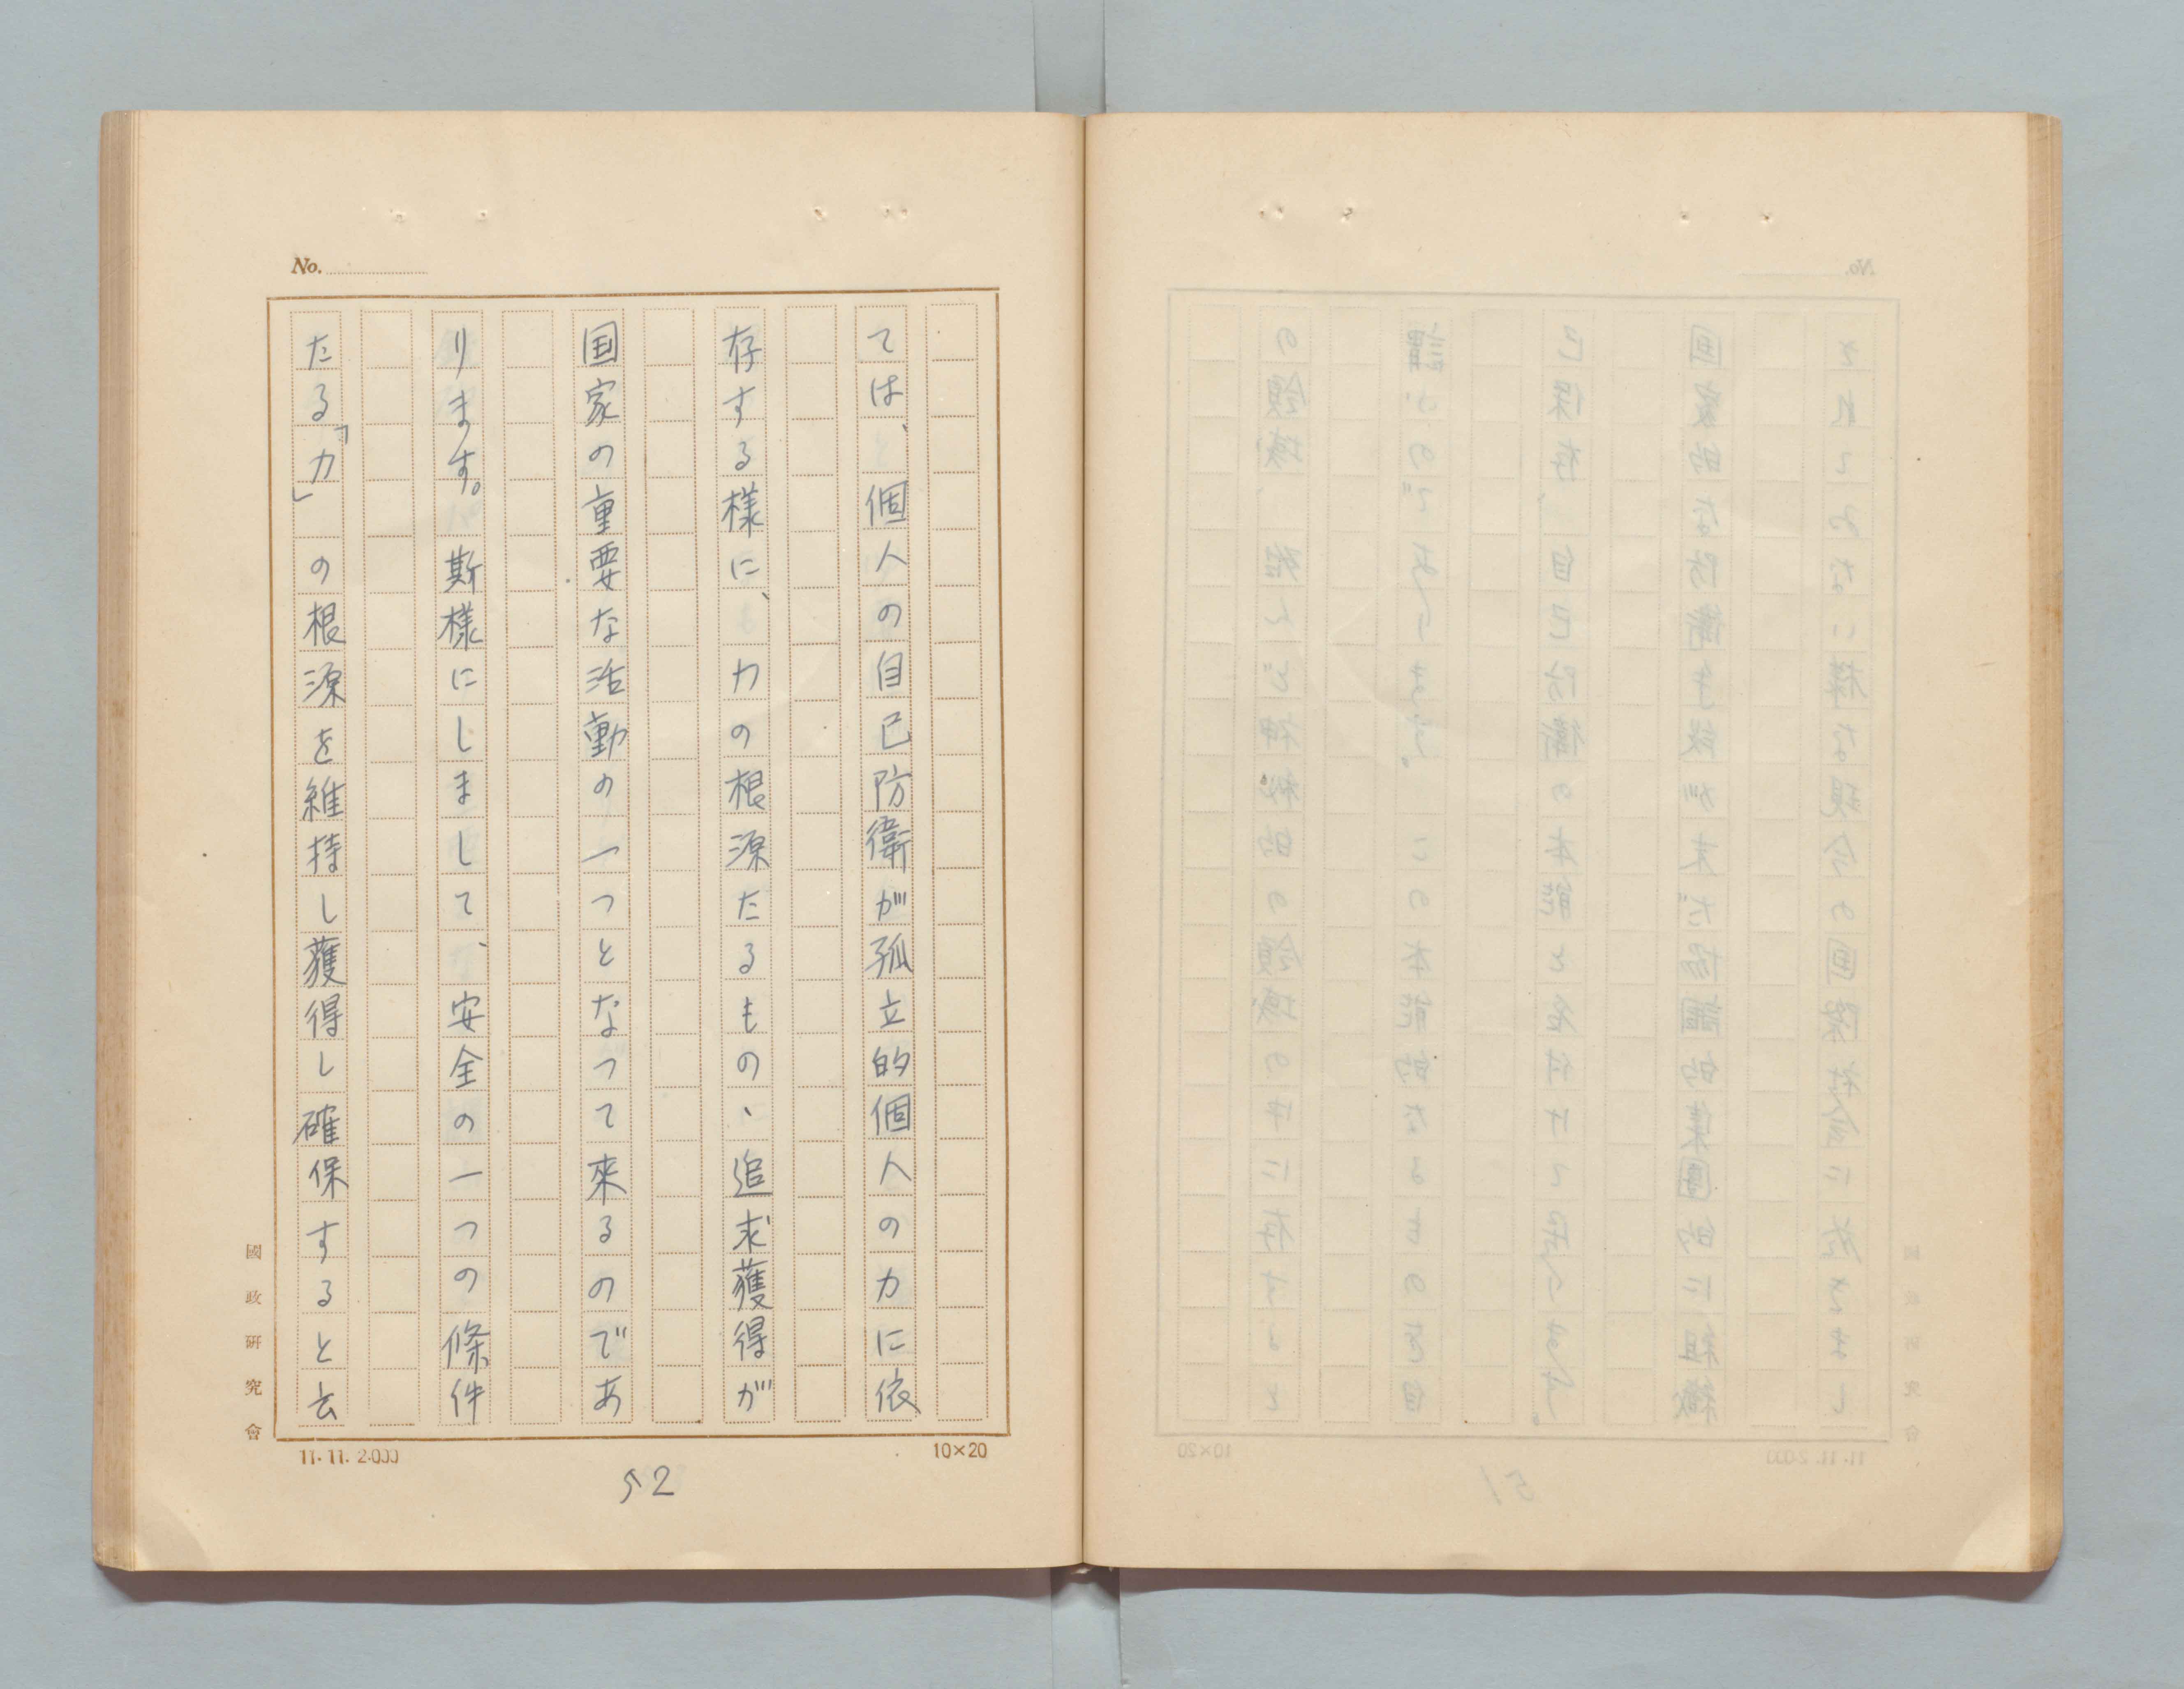 No.
ては、個人の自己防衛が孤立的個人の力に依
存する様に、力の根源たるもの、追求獲得が
国家の重要な活動の一つとなつて來るのであ
ります。斯様にしまして、安全の一つの條件
たる「力」の根源を維持し獲得し確保すると云
國政研究會
10×20
11.11.2.000
52